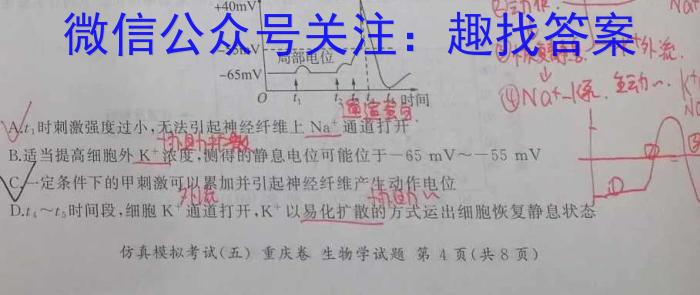 微信公众号关注：趣找答案
+40mV
局部电位
-65mV
O t₁ t₂ t₃ t₄ t₅ 时间
④Na⁺-K⁺泵.
外流.
A.t₁时刺激强度过小,无法引起神经纤维上 Na⁺通道打开
协助扩散
B.适当提高细胞外 K⁺浓度,测得的静息电位可能位于-65 mV～-55 mV
C.一定条件下的甲刺激可以累加并引起神经纤维产生动作电位
D.t₄～t₅时间段,细胞 K⁺通道打开,K⁺以易化扩散的方式运出细胞恢复静息状态
仿真模拟考试(五) 重庆卷 生物学试题 第 4 页(共 8 页)